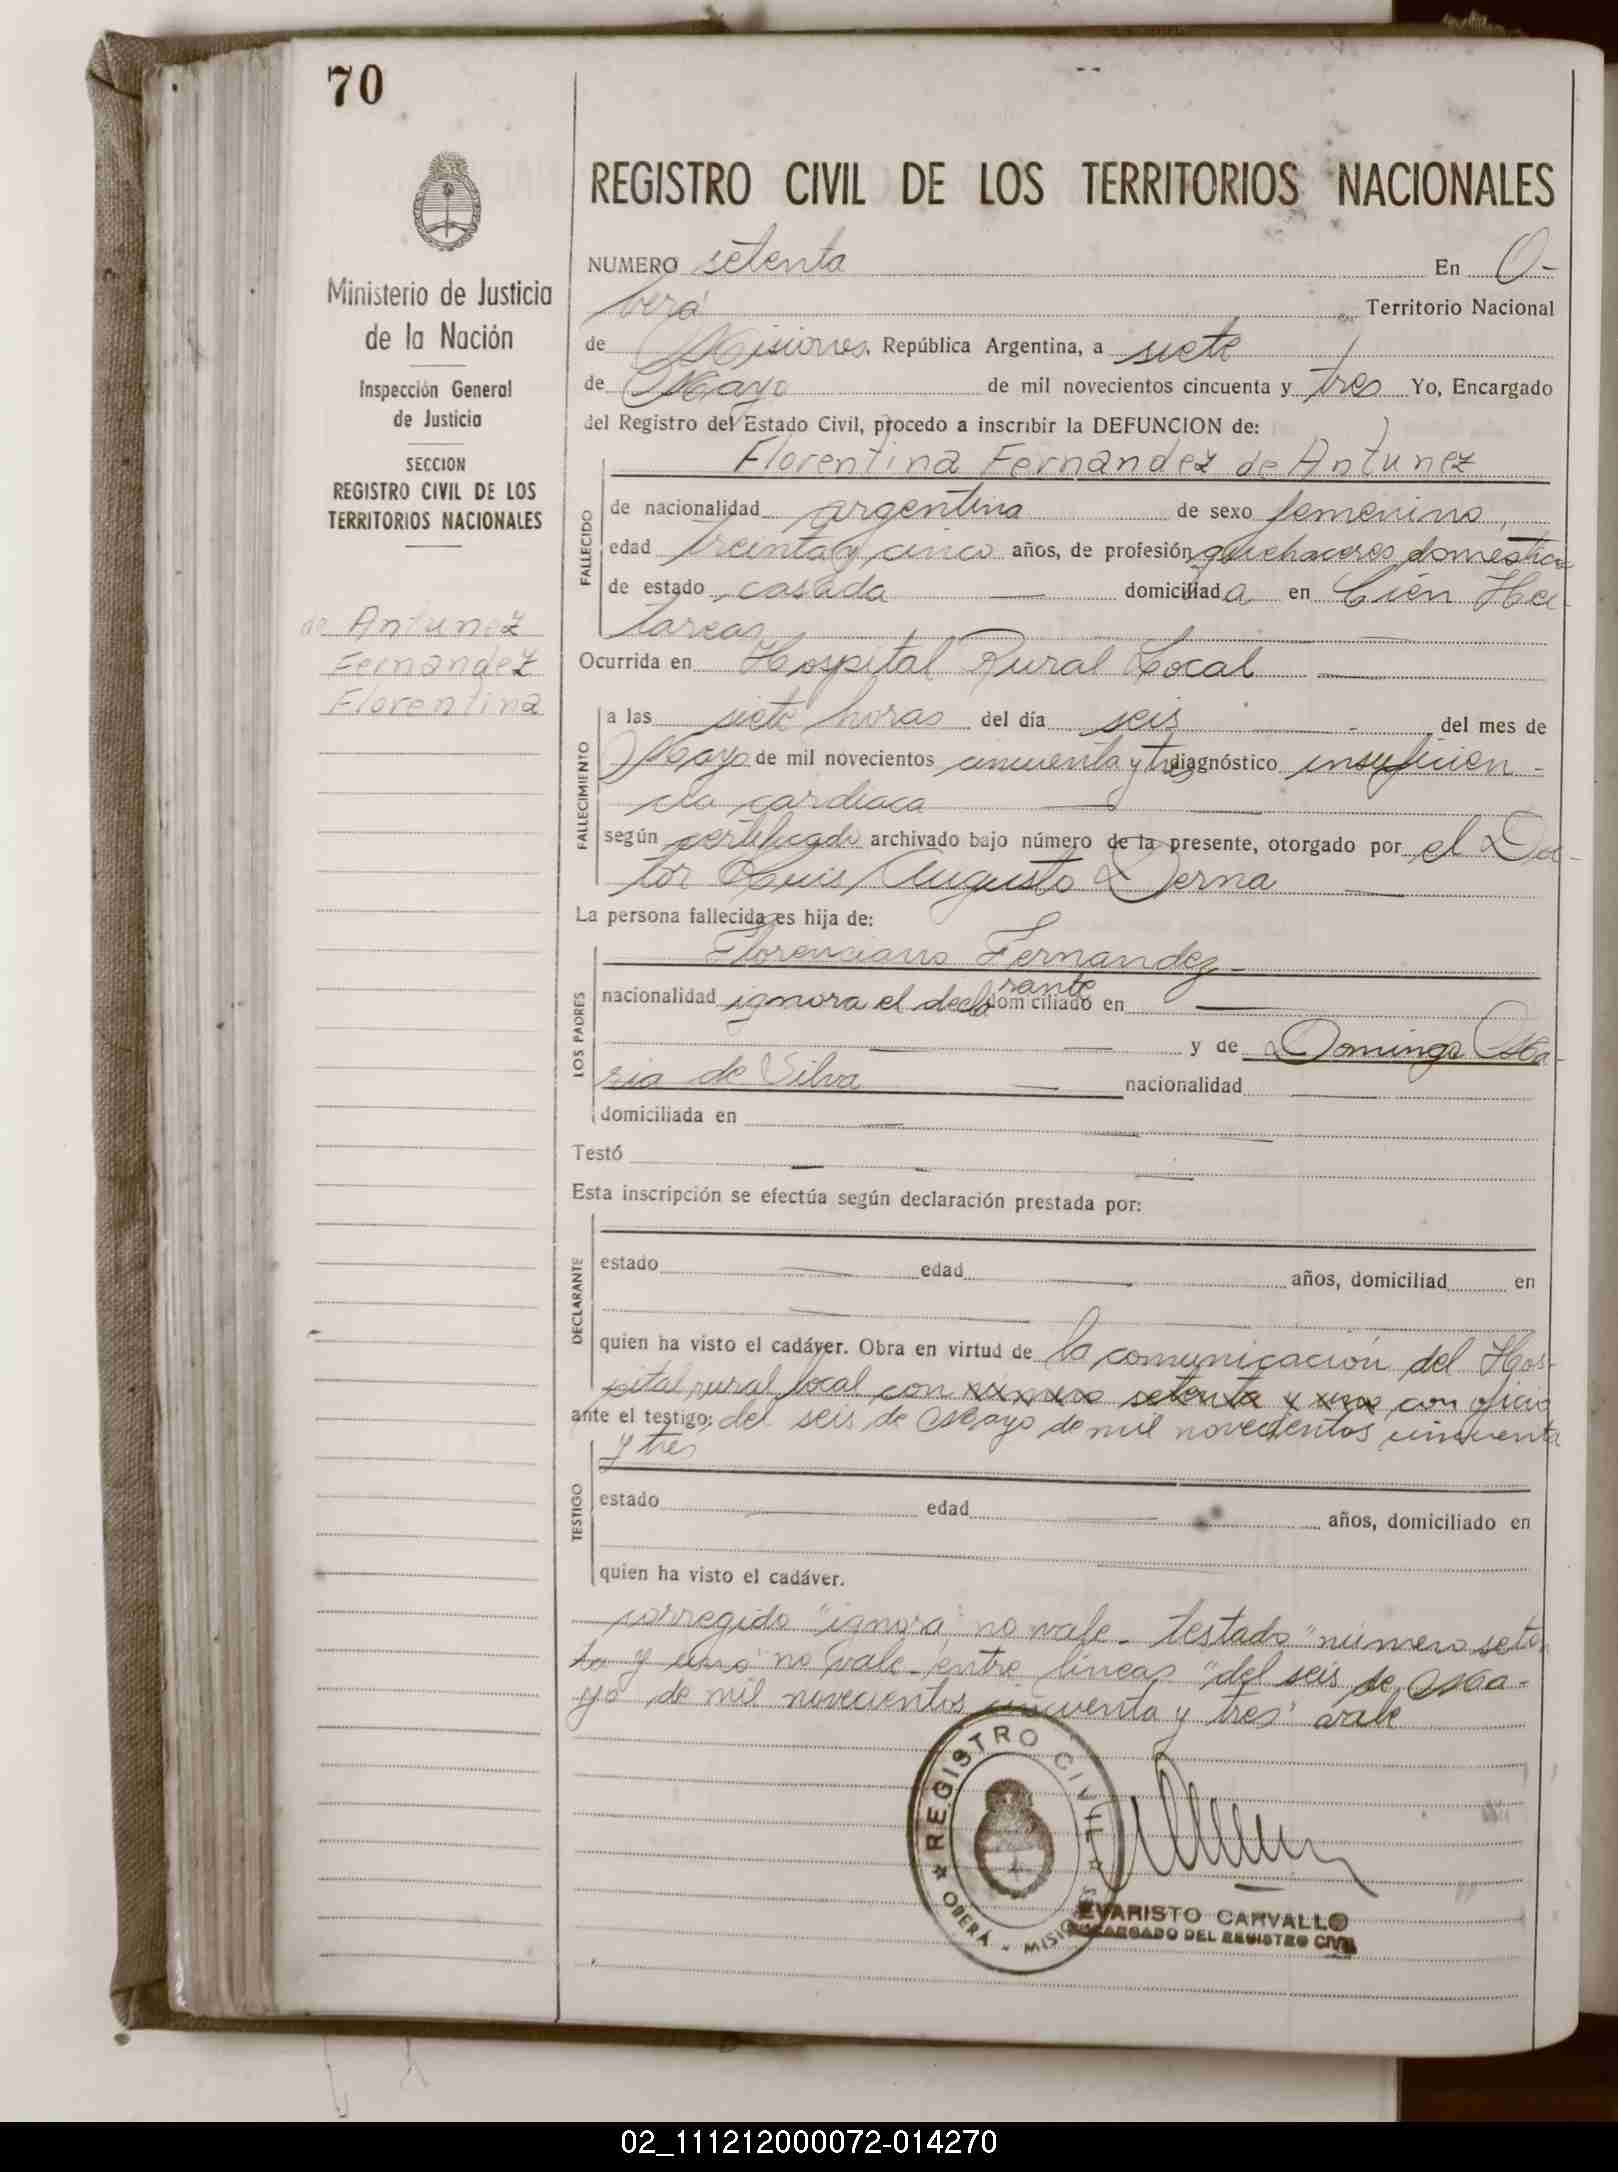 70
Ministerio de Justicia
de la Nación
Inspección General
de Justicia
SECCION
REGISTRO CIVIL DE LOS
TERRITORIOS NACIONALES
de Antunez
Fernandez
Florentina
REGISTRO CIVIL DE LOS TERRITORIOS NACIONALES
NUMERO setenta En O-
berá Territorio Nacional
de Misiones, República Argentina, a siete
de Mayo de mil novecientos cincuenta y tres Yo, Encargado
del Registro del Estado Civil, procedo a inscribir la DEFUNCION de:
Florentina Fernandez de Antunez
FALLECIDO
de nacionalidad argentina de sexo femenino,
edad treinta y cinco años, de profesión quehaceres domestico
de estado casada — domiciliada en Cién Hec-
tareas
Ocurrida en Hospital Rural Local —
FALLECIMIENTO
a las siete horas del día seis — del mes de
Mayo de mil novecientos cincuenta y tres diagnóstico insuficien-
cia cardiaca —
según certificado archivado bajo número de la presente, otorgado por el Doc-
tor Luis Augusto Derna —
La persona fallecida es hija de:
Florenciano Fernandez
LOS PADRES
nacionalidad ignora el declarante domiciliado en —
— y de Dominga Ma-
ria de Silva — nacionalidad —
domiciliada en —
Testó —
Esta inscripción se efectúa según declaración prestada por:
DECLARANTE
estado — edad — años, domiciliad en
quien ha visto el cadáver. Obra en virtud de la comunicación del Hos-
pital rural local con número setenta y uno con oficio
ante el testigo: del seis de Mayo de mil novecientos cincuenta
y tres
TESTIGO
estado — edad — años, domiciliado en
quien ha visto el cadáver.
corregido "ignora" no vale - testado "número seten
ta y uno" no vale - entre líneas "del seis de Ma-
yo de mil novecientos cincuenta y tres" vale
REGISTRO CIVIL
OBERÁ - MISIONES
EVARISTO CARVALLO
ENCARGADO DEL REGISTRO CIVIL
02_111212000072-014270